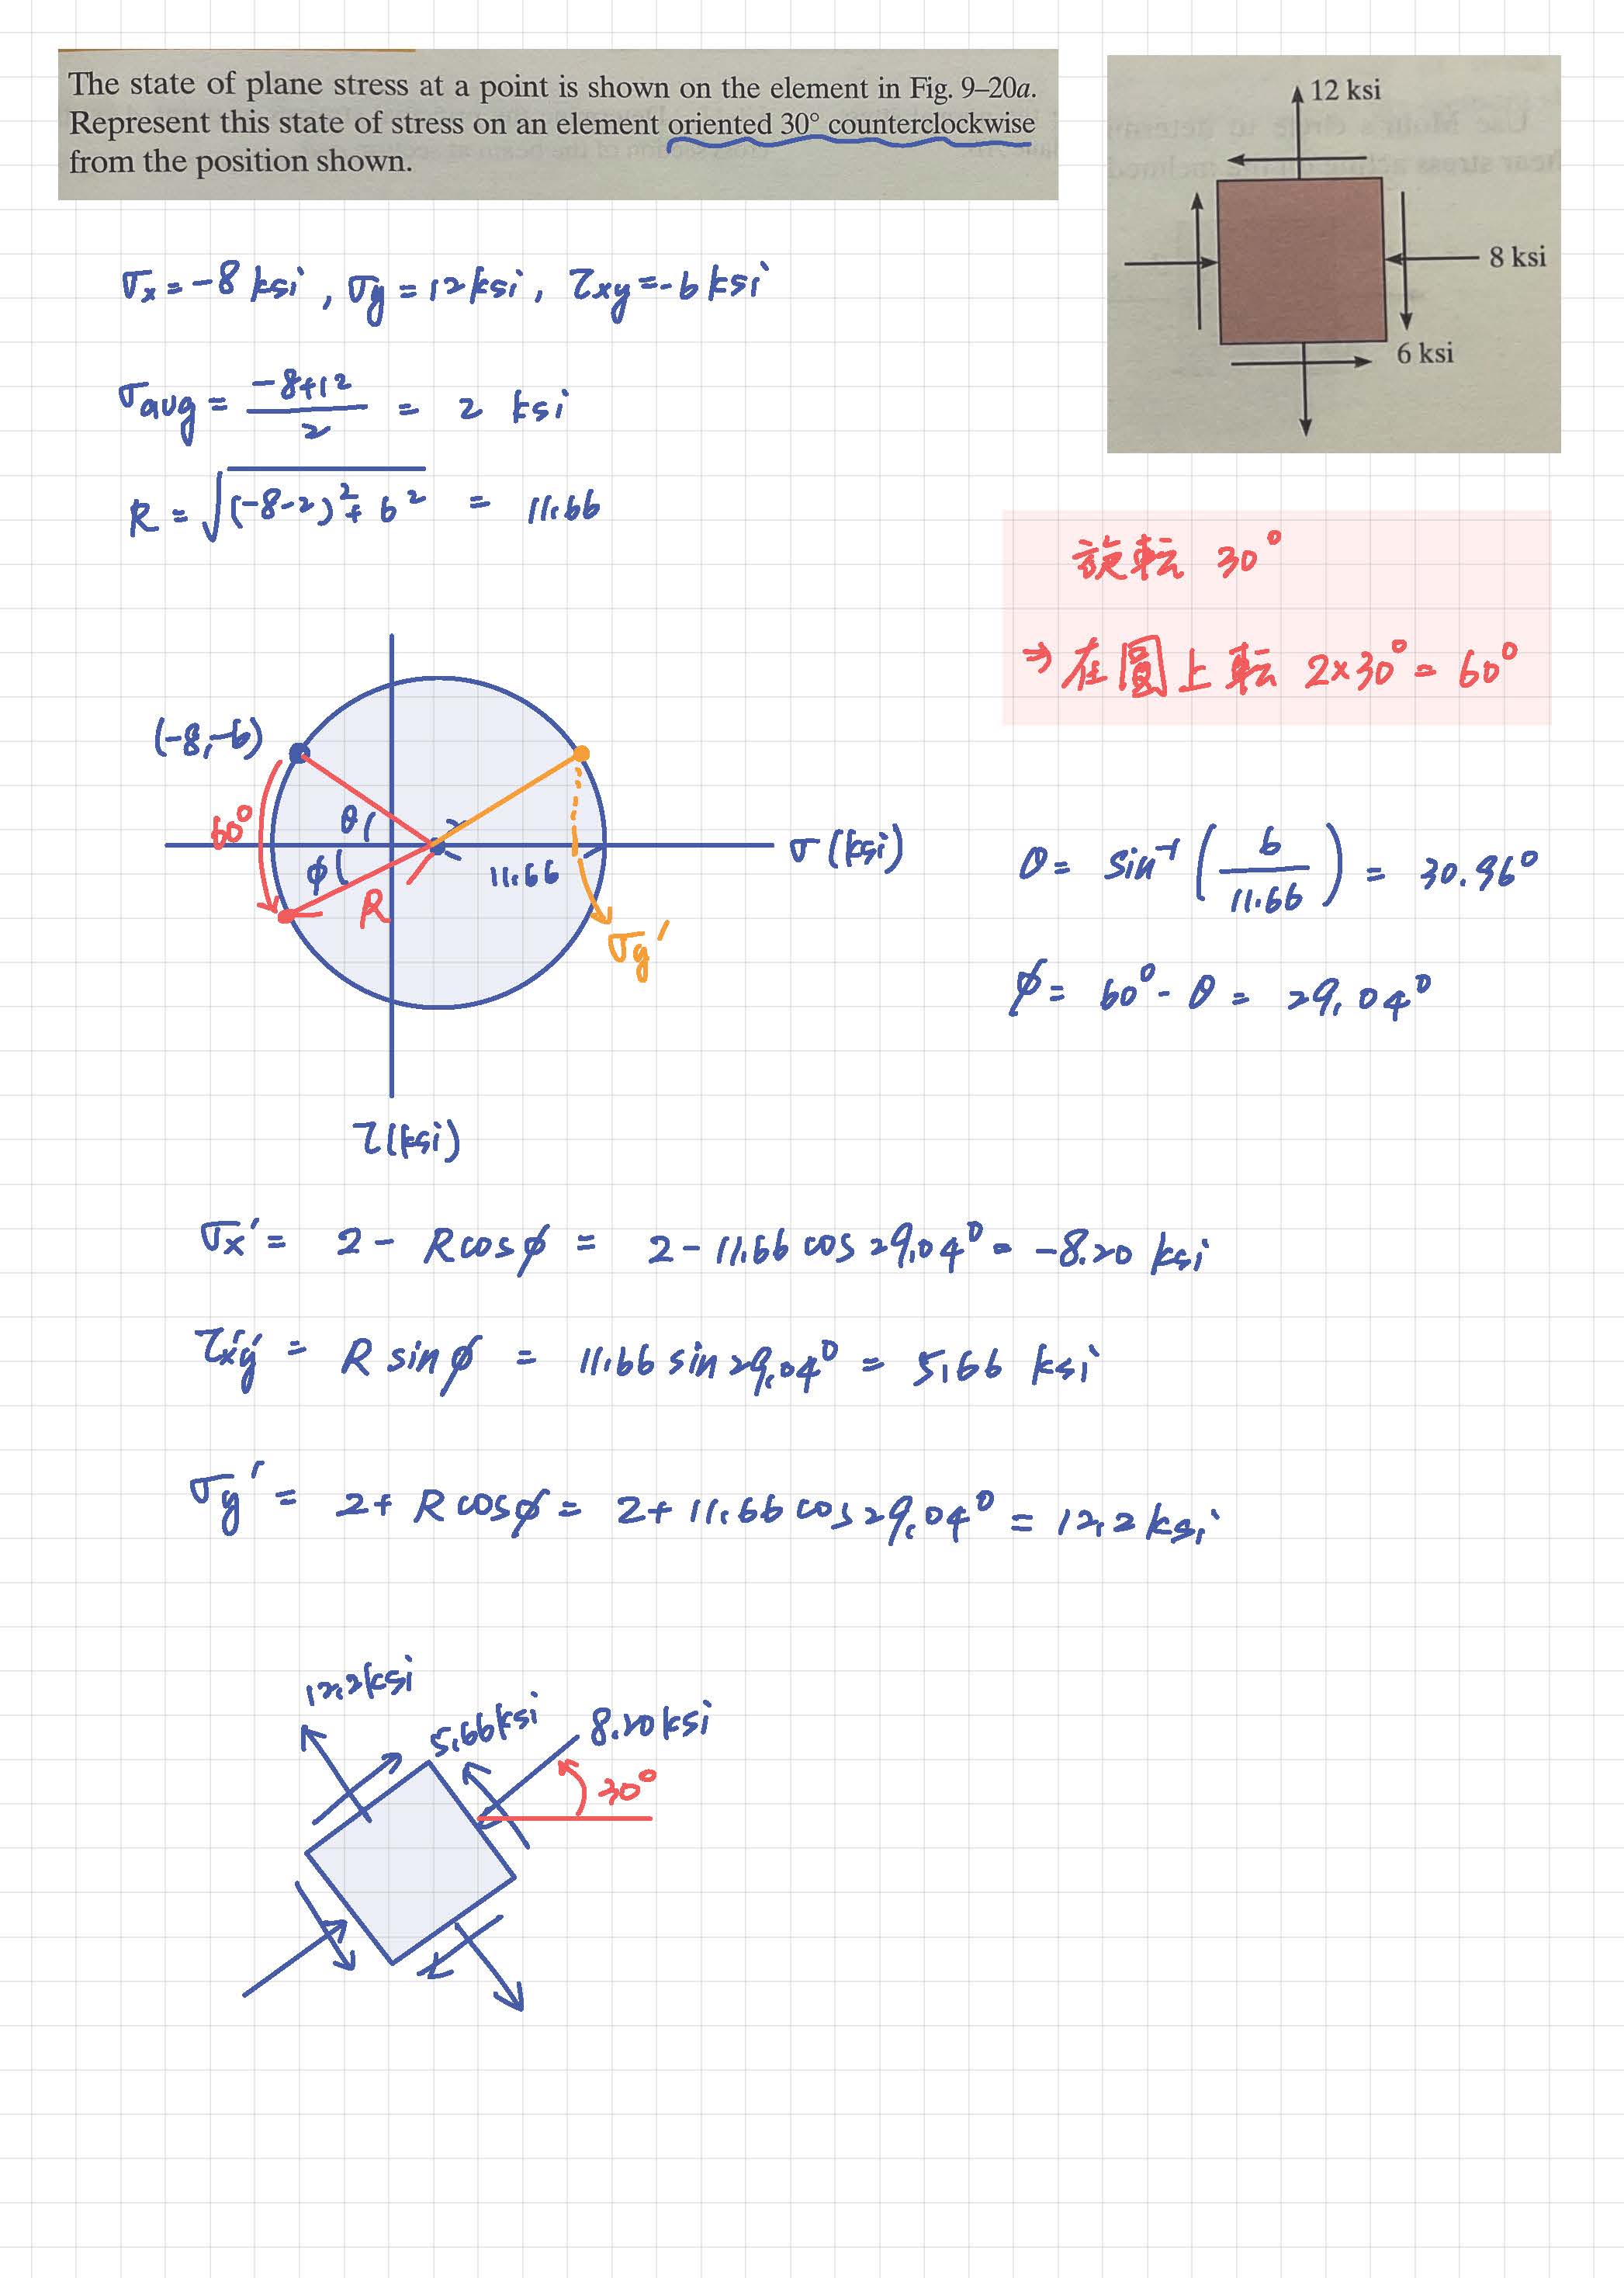 The state of plane stress at a point is shown on the element in Fig. 9–20a.
Represent this state of stress on an element oriented 30° counterclockwise
from the position shown.
12 ksi
8 ksi
6 ksi
σx = -8 ksi, σy = 12 ksi, τxy = -6 ksi
σavg = (-8+12)/2 = 2 ksi
R = √((-8-2)² + 6²) = 11.66
旋転 30°
⇒ 在圓上転 2×30° = 60°
(-8,-6)
60°
θ
φ
R
2
11.66
σ (ksi)
σy'
τ(ksi)
θ = sin⁻¹(6/11.66) = 30.96°
φ = 60° - θ = 29.04°
σx' = 2 - R cosφ = 2 - 11.66 cos 29.04° = -8.20 ksi
τx'y' = R sinφ = 11.66 sin 29.04° = 5.66 ksi
σy' = 2 + R cosφ = 2 + 11.66 cos 29.04° = 12.2 ksi
12.2 ksi
5.66 ksi
8.20 ksi
30°